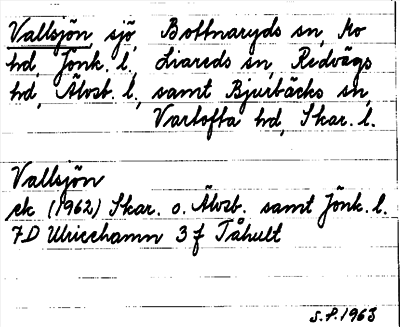 Vallsjön sjö, Bottnaryds sn, Mo
hd, Jönk. l., Liareds sn, Redvägs
hd, Älvsb. l., samt Bjurbäcks sn,
Vartofta hd, Skar. l.
Vallsjön
ek (1962) Skar. o. Älvsb. samt Jönk. l.
7D Ulricehamn 3 f Tåhult
S.P. 1963